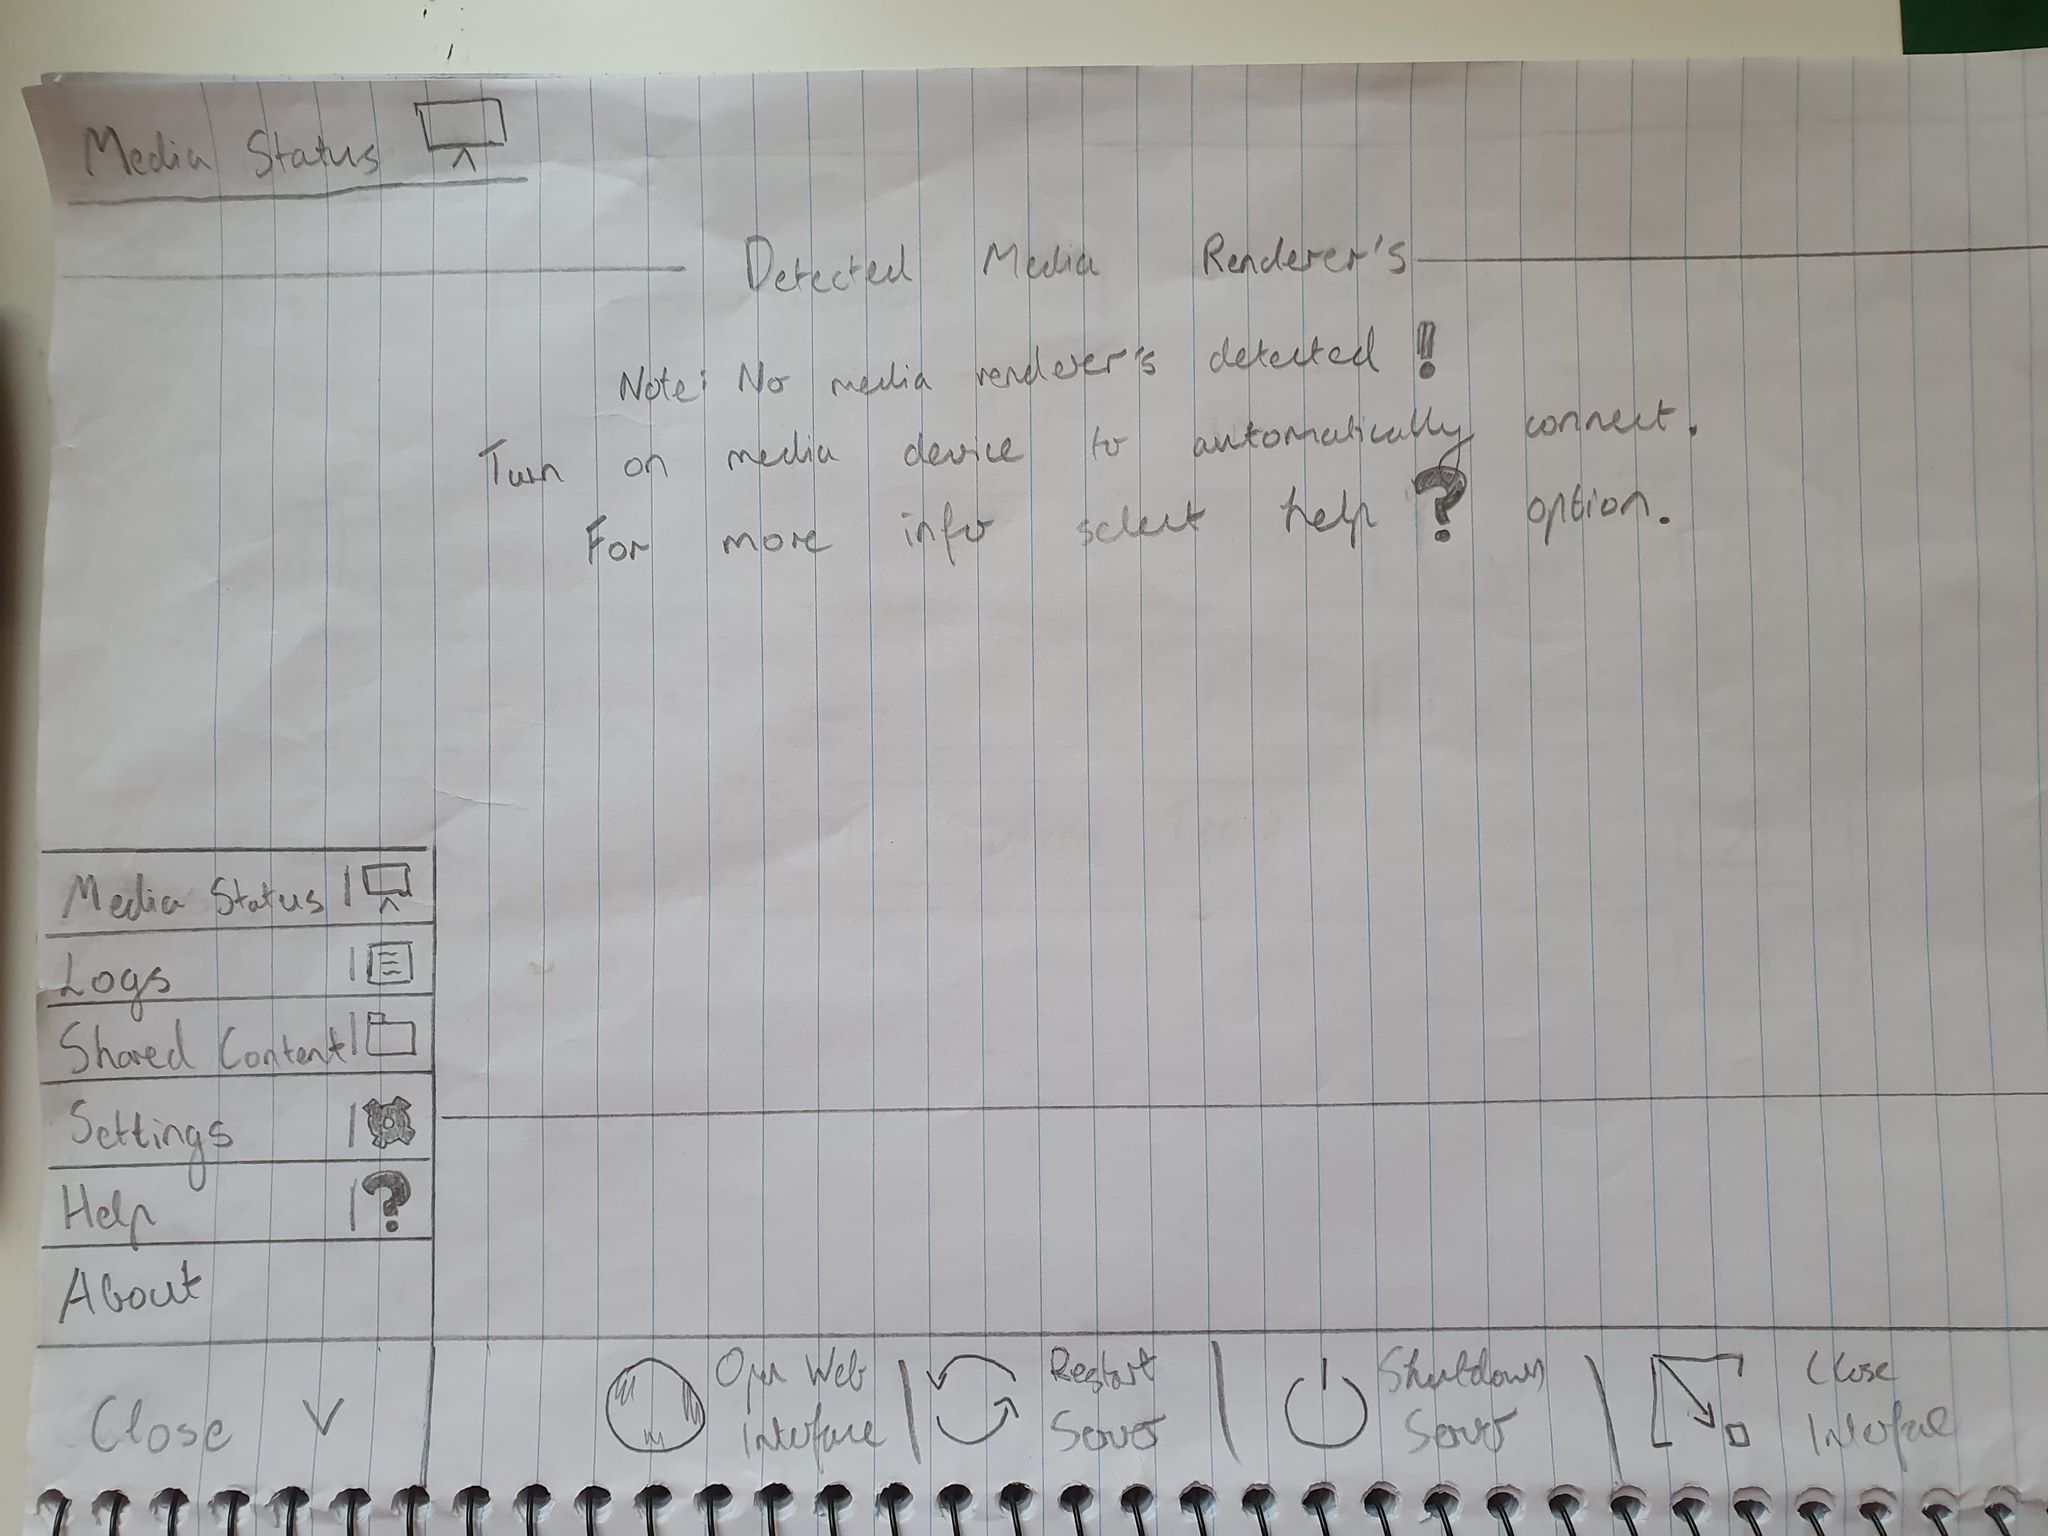 Media Status
Detected Media Renderer's
Note: No media renderer's detected!
Turn on media device to automatically connect.
For more info select help ? option.
Media Status
Logs
Shared Content
Settings
Help ?
About
Close
Open Web
Interface
Restart
Server
Shutdown
Server
Close
Interface